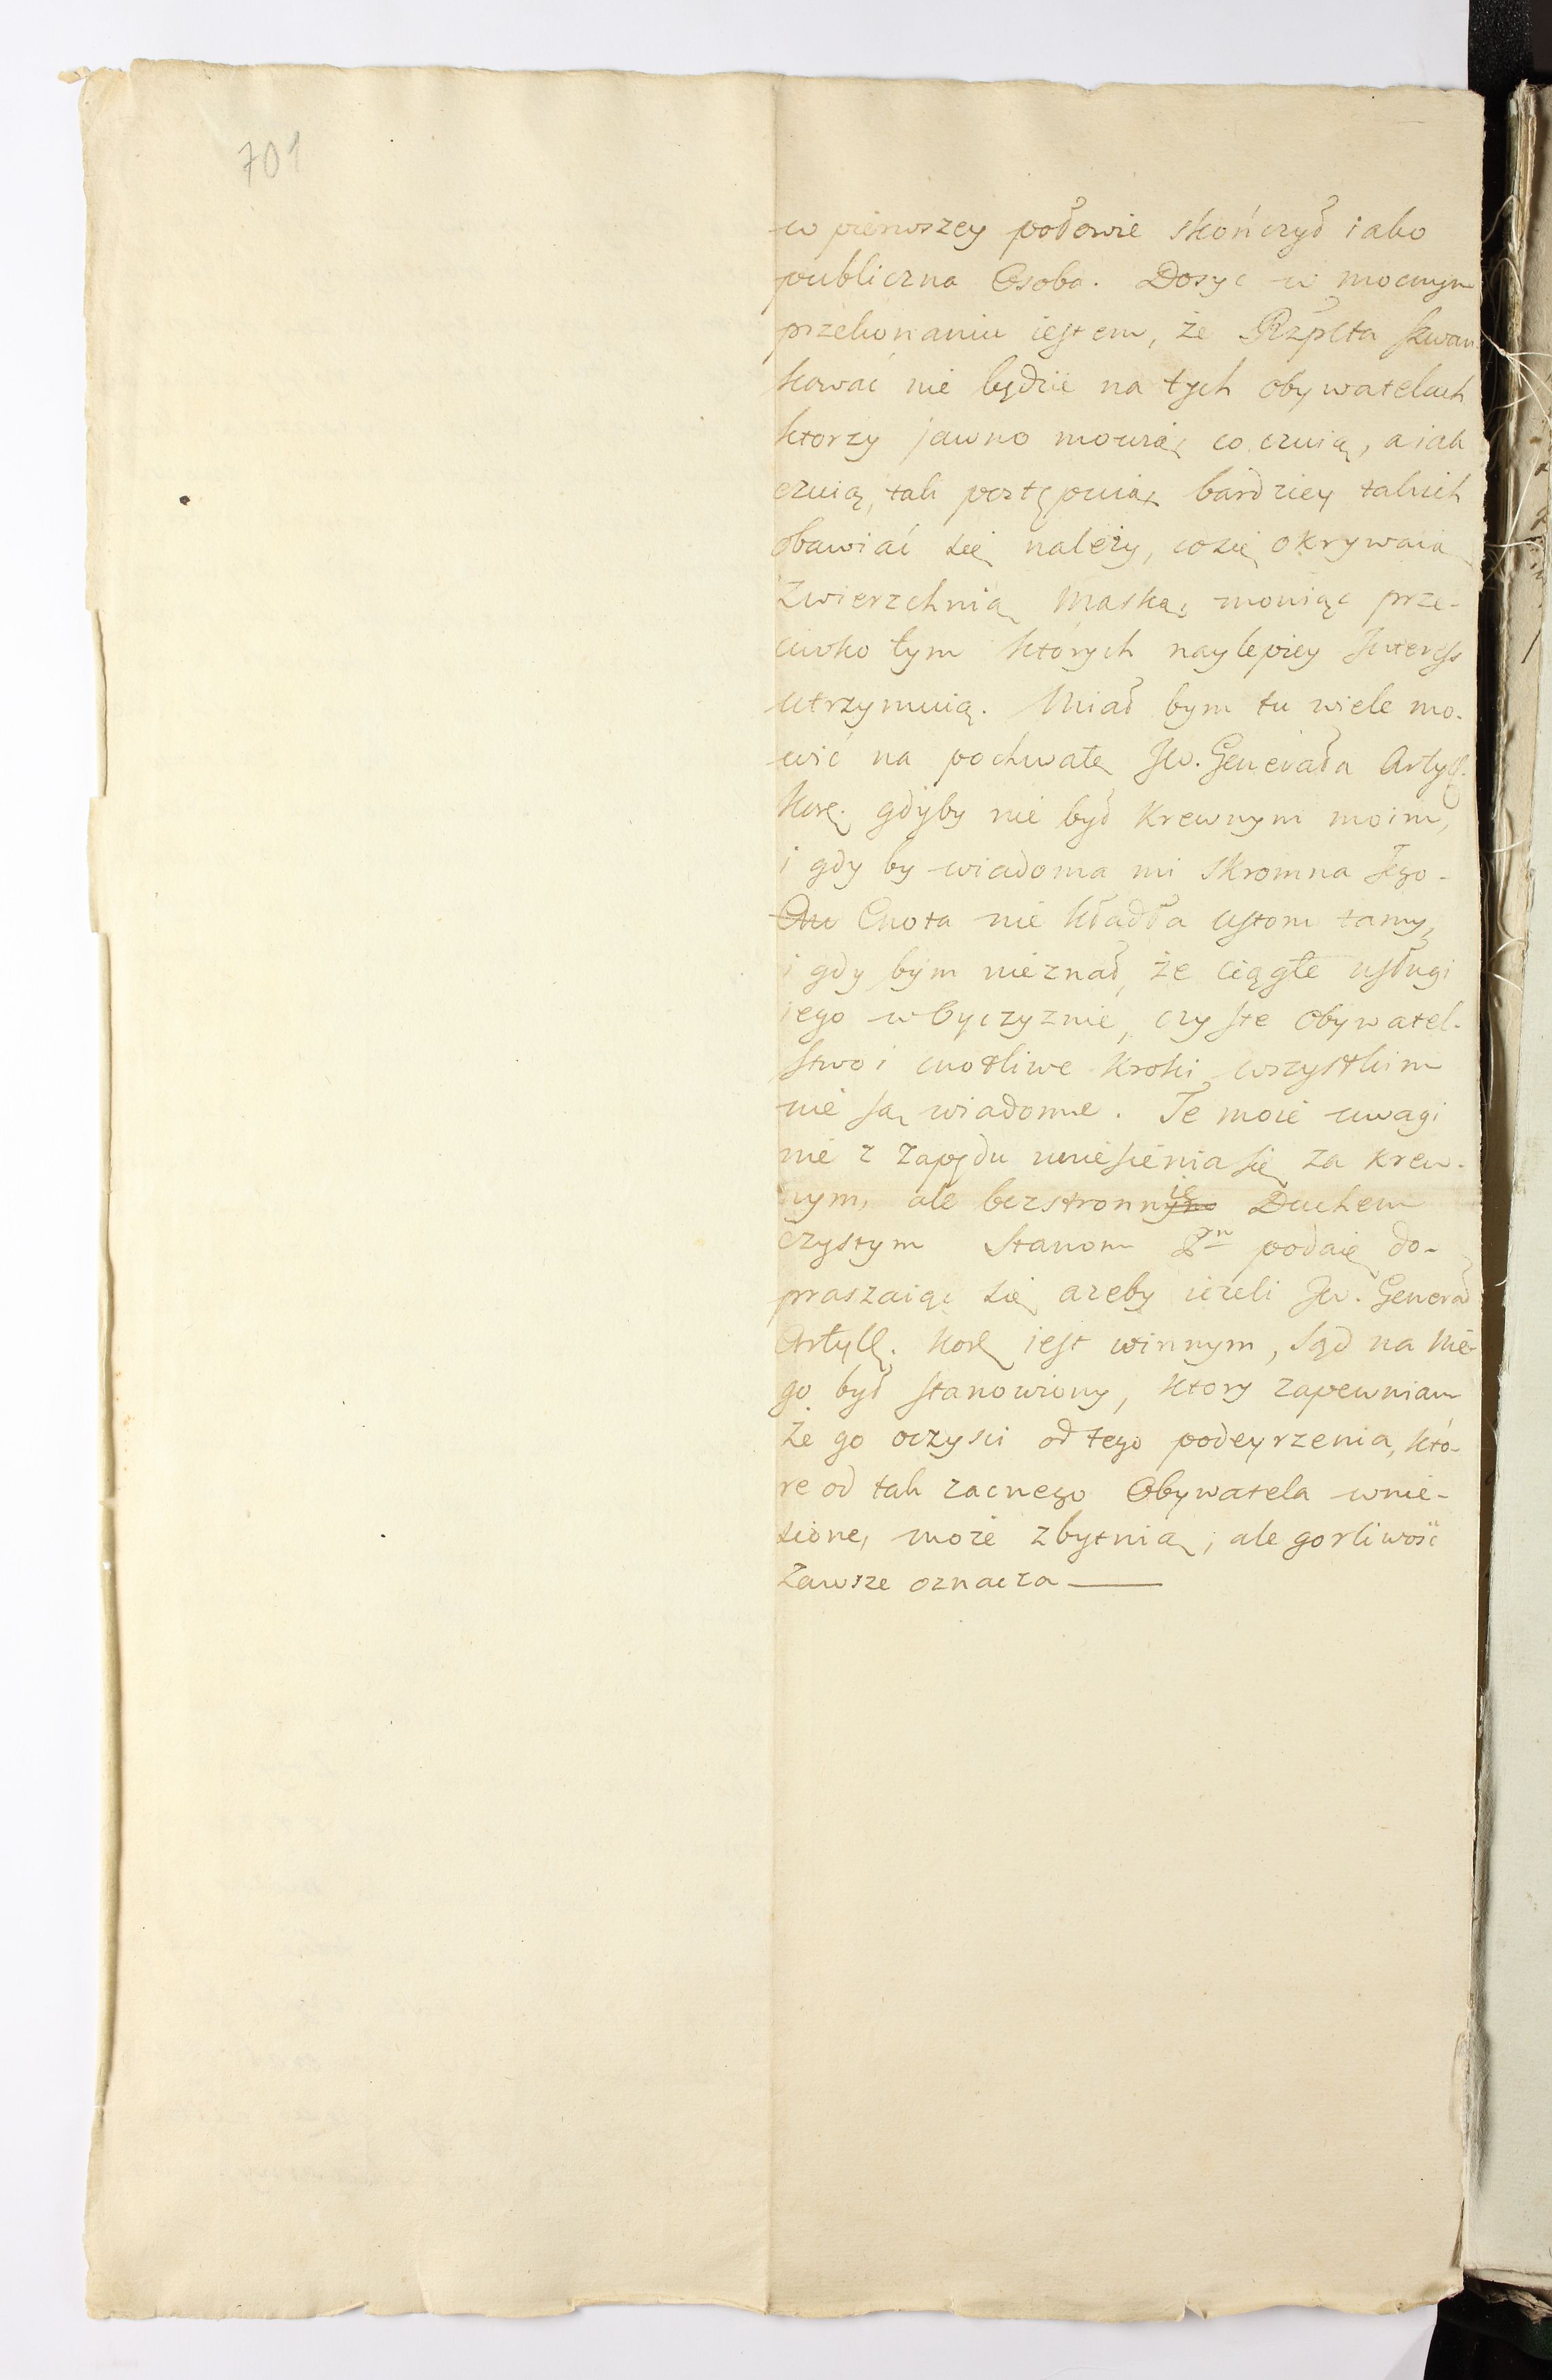 701
w pierwszey połowie skończył iako
publiczna Osoba. Dosyc w mocnym
przekonaniu iestem, że Rzplta szwan
kować nie będzie na tych obywatelach
ktorzy jawno mowią co czuią, a iak
czuią, tak postępuią bardziey takich
obawiać się należy, co się okrywaią
Zwierzchnią Maską mowiąc prze-
ciwko tym których naylepiey Interess
utrzymuią. Miał bym tu wiele mo-
wić na pochwałę Jw. Generała Artyll.
Kor. gdyby nie był Krewnym moim,
i gdy by wiadoma mi skromna Jego-
Cnota nie kładła ustom tamy,
i gdy bym nieznał, że ciągłe usługi
iego w Oyczyznie, czyste Obywatel-
stwo i cnotliwe kroki wszystkim
nie są wiadome. Te moie uwagi
nie z zapędu uniesienia się za krew-
nym, ale bezstronnie Duchem
czystym Stanom podaię do-
praszaiąc się azeby iezeli Jw. Generał
Artyll. Kor. iest winnym, Sąd na nie-
go był stanowiony, ktory zapewniam
że go oczysci od tego podeyrzenia, któ-
re od tak zacnego Obywatela wnie-
sione, może zbytnią, ale gorliwość
Zawsze oznacza